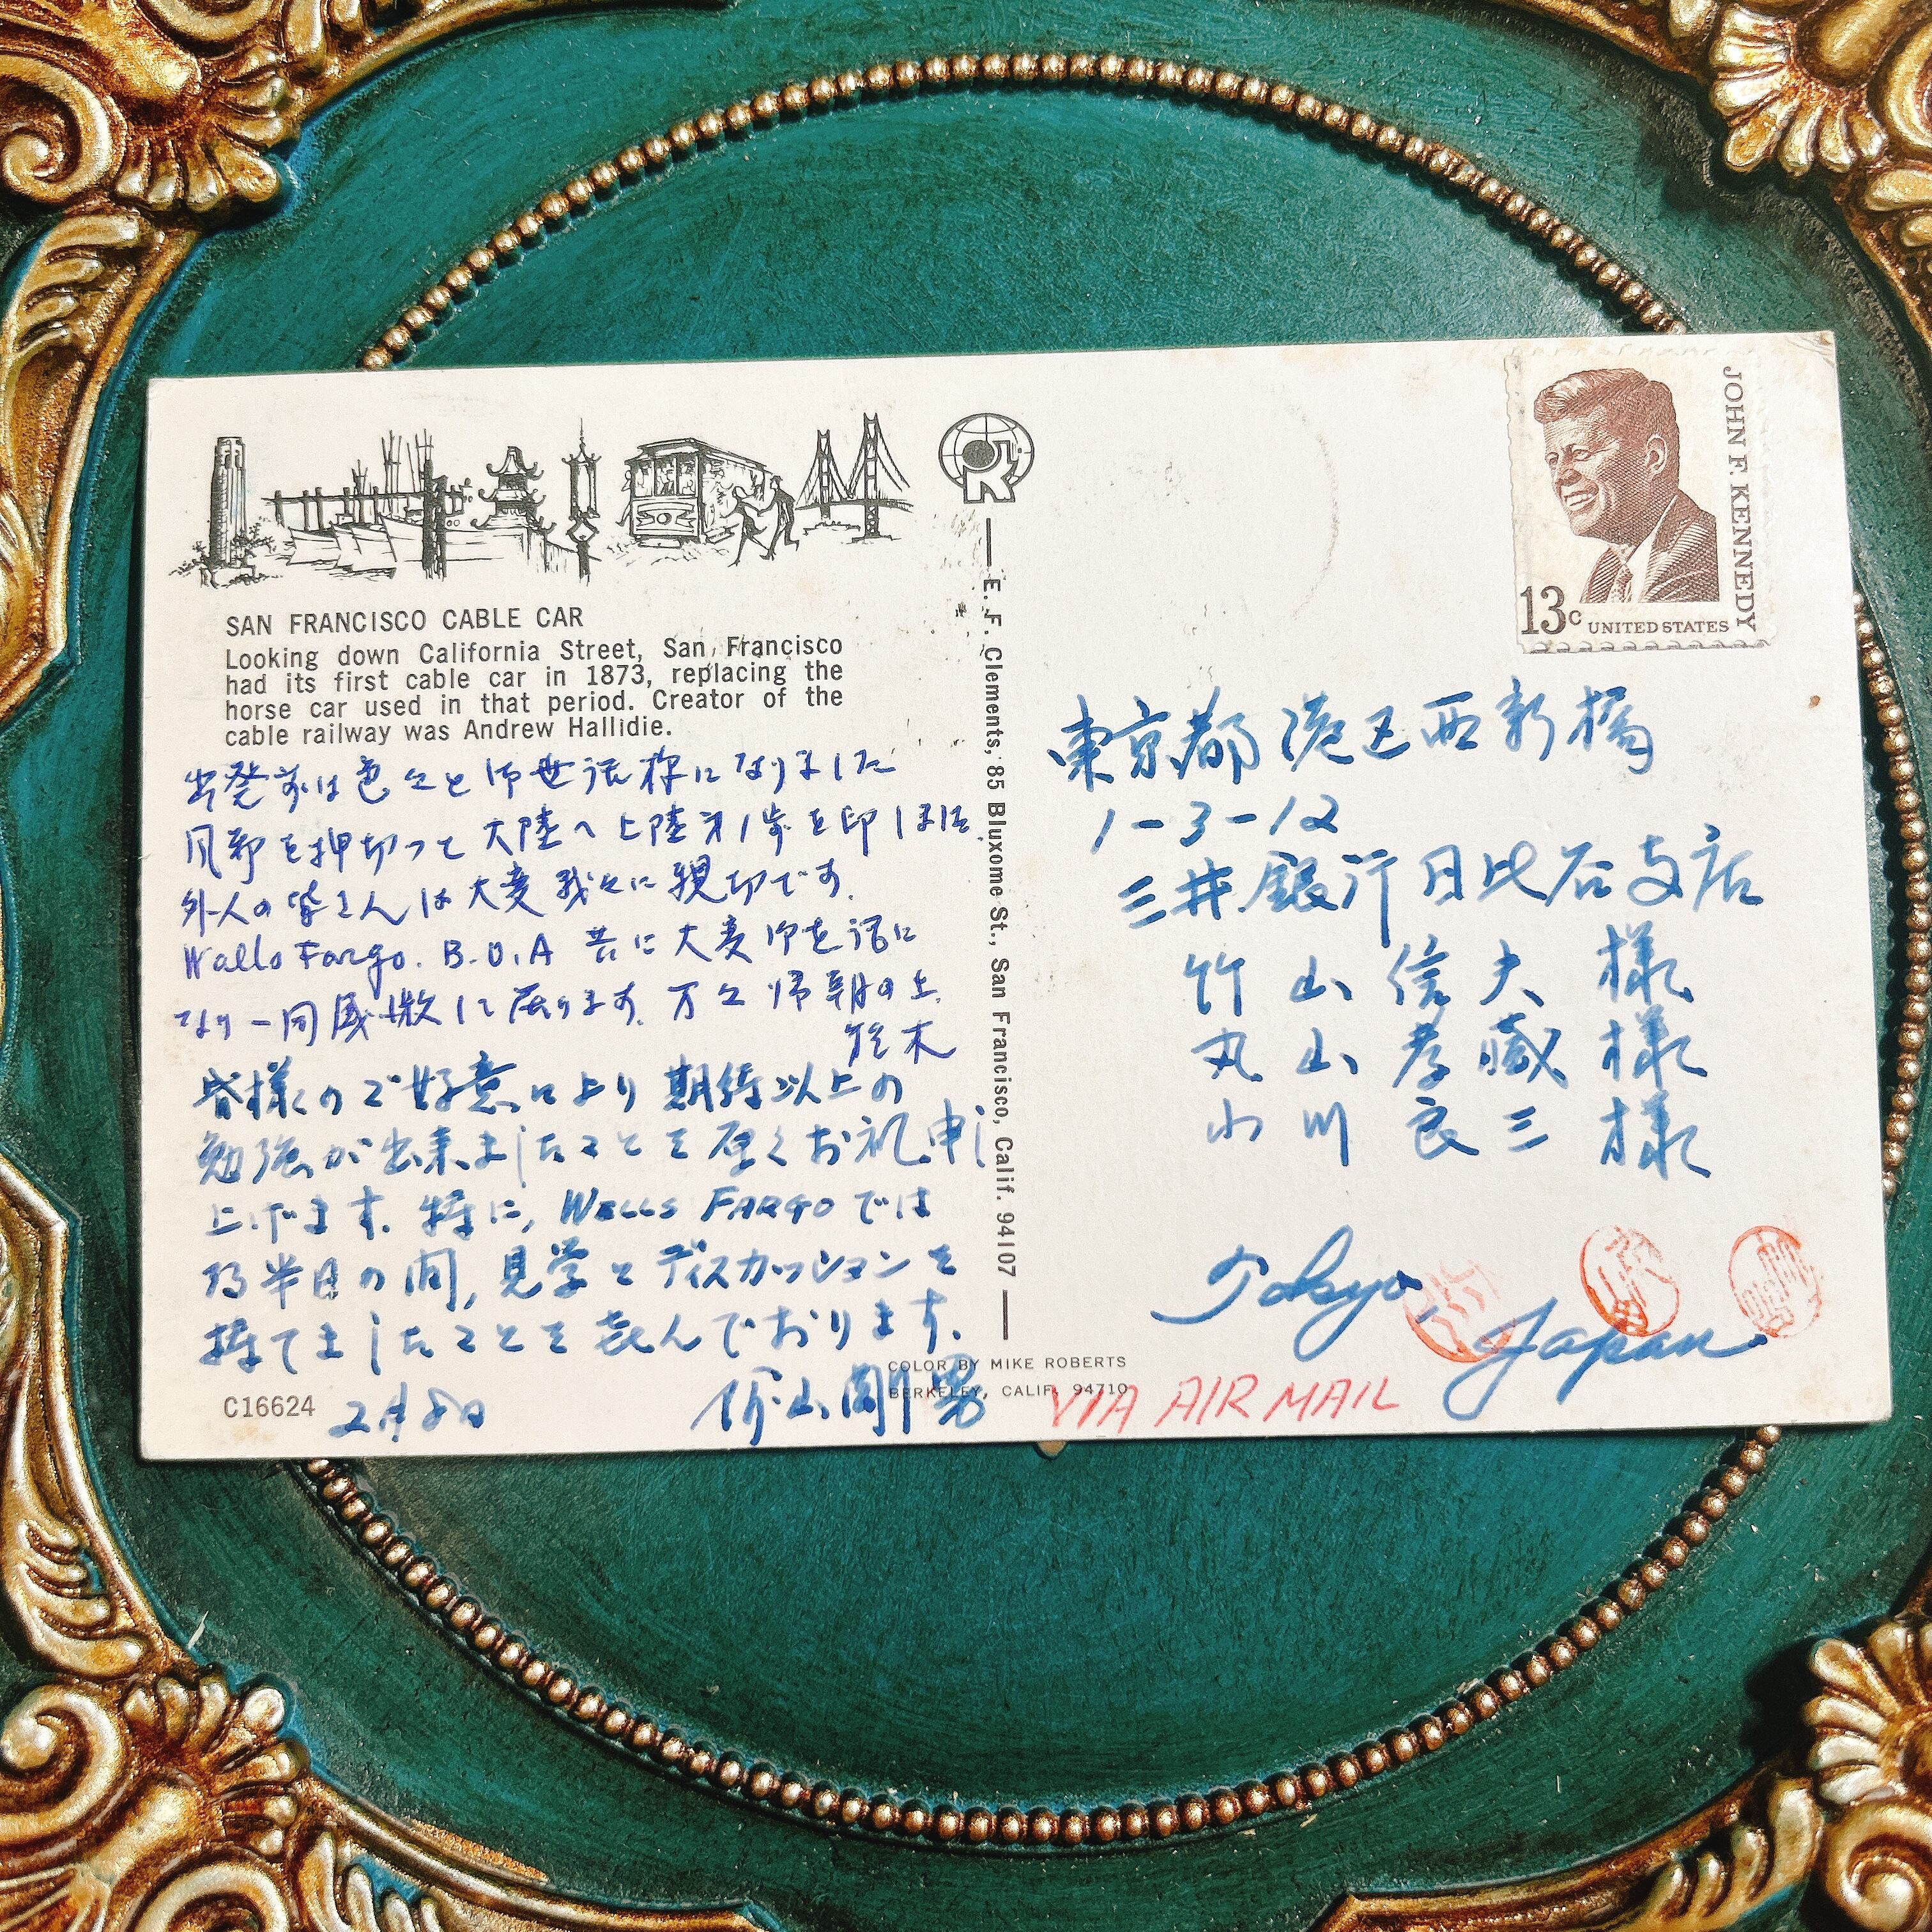 SAN FRANCISCO CABLE CAR
Looking down California Street, San Francisco
had its first cable car in 1873, replacing the
horse car used in that period. Creator of the
cable railway was Andrew Hallidie.
出発前は色々と御世話様になりました
を押切って大陸へ上陸第1歩を印しました
外人の皆さんは大変我々に親切です。
Wallo Fargo. B.O.A 共に大変御世話に
なり一同感激して居ります。万々帰朝の上
鈴木
皆様のご好意により期待以上の
勉強が出来ましたことを厚くお礼申し
上げます。特に、WELLS FARGOでは
半日の間、見学とディスカッションを
持てましたことを喜んでおります。
2月8日
山剛男
C16624
E. F. Clements, 85 Bluxome St., San Francisco, Calif. 94107
COLOR BY MIKE ROBERTS
BERKELEY, CALIF. 94710
JOHN F. KENNEDY
13c UNITED STATES
東京都港区西新橋
1-3-12
三井銀行日比谷支店
竹山信夫様
丸山孝蔵様
小川良三様
Tokyo,
Japan.
VIA AIR MAIL